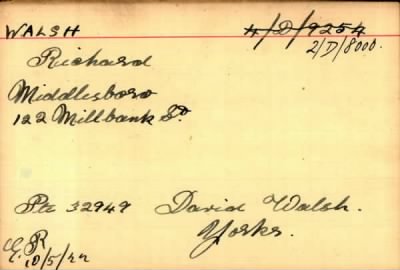 WALSH 4/D/9254
2/D/8000.
Richard
Middlesboro
122 Millbank St.
Pte 32949 David Walsh.
Yorks.
E.R
10/5/22